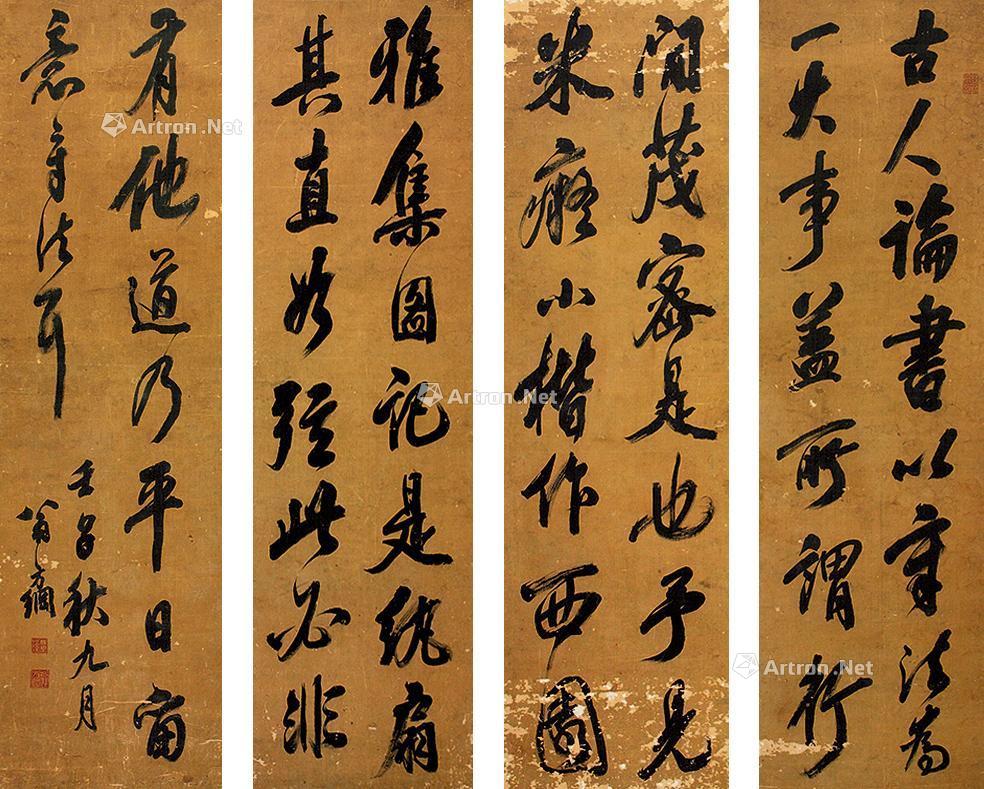 古人論書以章法為
一大事蓋所謂行
間茂密是也予見
米癡小楷作西園
雅集圖記是紈扇
其直如弦此必非
有他道乃平日留
意章法耳
壬 秋九月
翁
Artron.Net
Artron.Net
Artron.Net